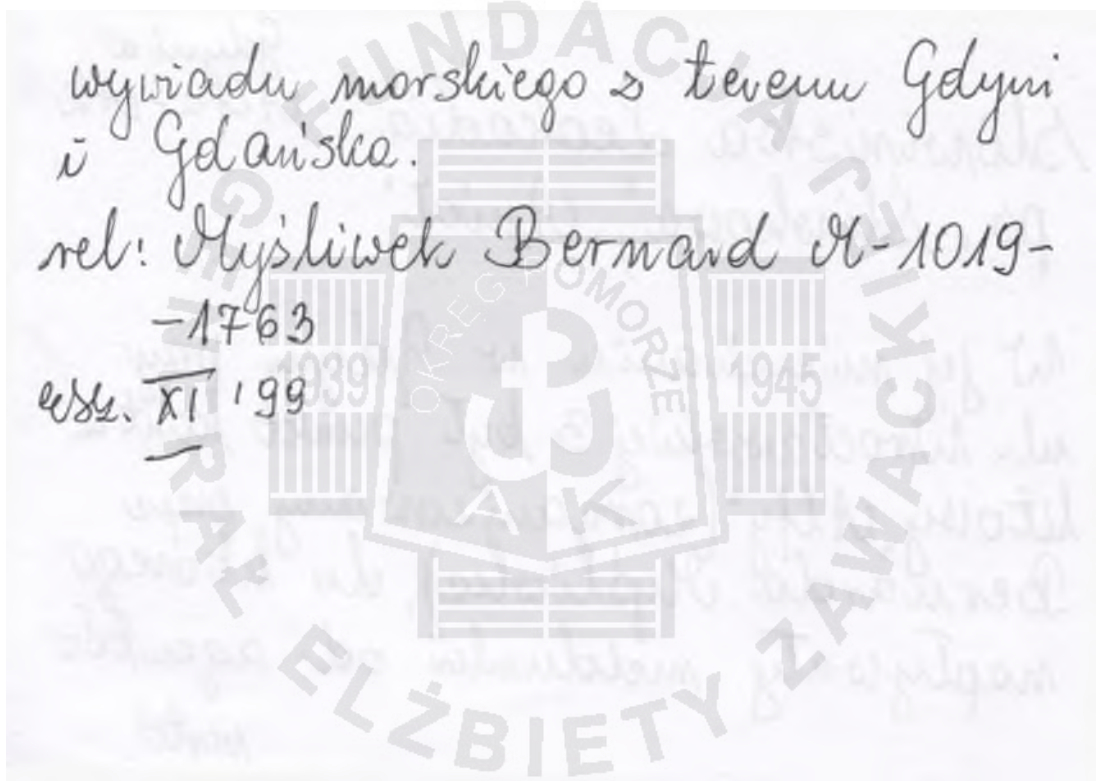 wywiadu morskiego z terenu Gdyni
i Gdańska.
rel: Myśliwek Bernard M-1019-
-1763
XI '99
FUNDACJA GENERAŁ ELŻBIETY ZAWACKIEJ
OKRĘG POMORZE
1939
1945
AK